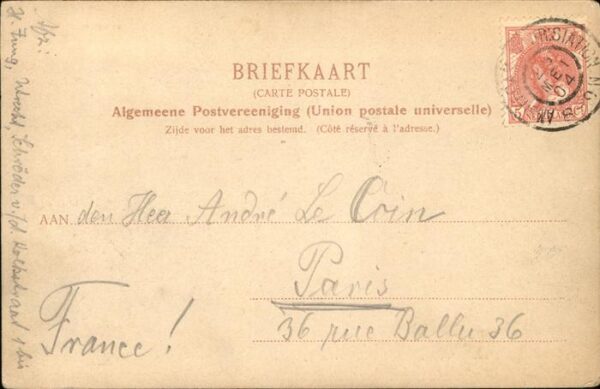 BRIEFKAART
(CARTE POSTALE)
Algemeene Postvereeniging (Union postale universelle)
Zijde voor het adres bestemd. (Côté réservé à l'adresse.)
AAN den Heer André Le
Paris
36 rue Ballu 36
France!
Utrecht, Schröder v/d 1 bis
5